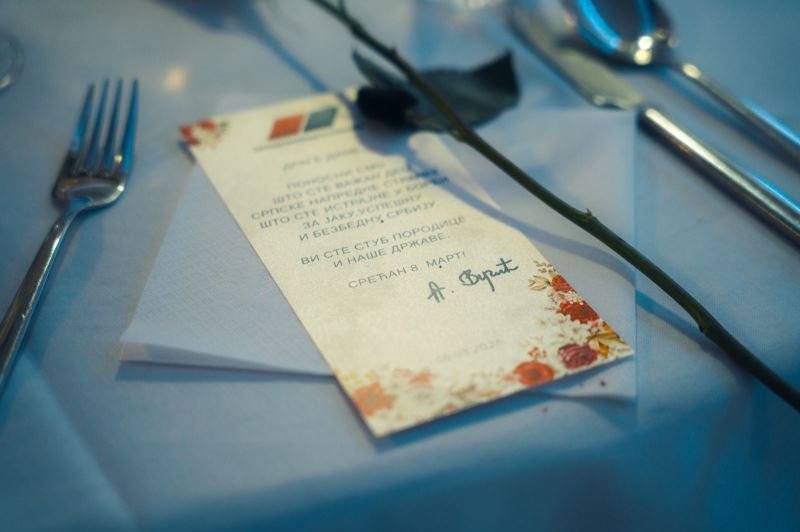 ДРАГЕ ДАМЕ,
ПОНОСНИ СМО
ШТО СТЕ ВАЖАН ДЕО
СРПСКЕ НАПРЕДНЕ СТРАНКЕ
ШТО СТЕ ИСТРАЈНЕ У БОРБИ
ЗА ЈАКУ, УСПЕШНУ
И БЕЗБЕДНУ СРБИЈУ
ВИ СТЕ СТУБ ПОРОДИЦЕ
И НАШЕ ДРЖАВЕ.
СРЕЋАН 8. МАРТ!
А. Вучић